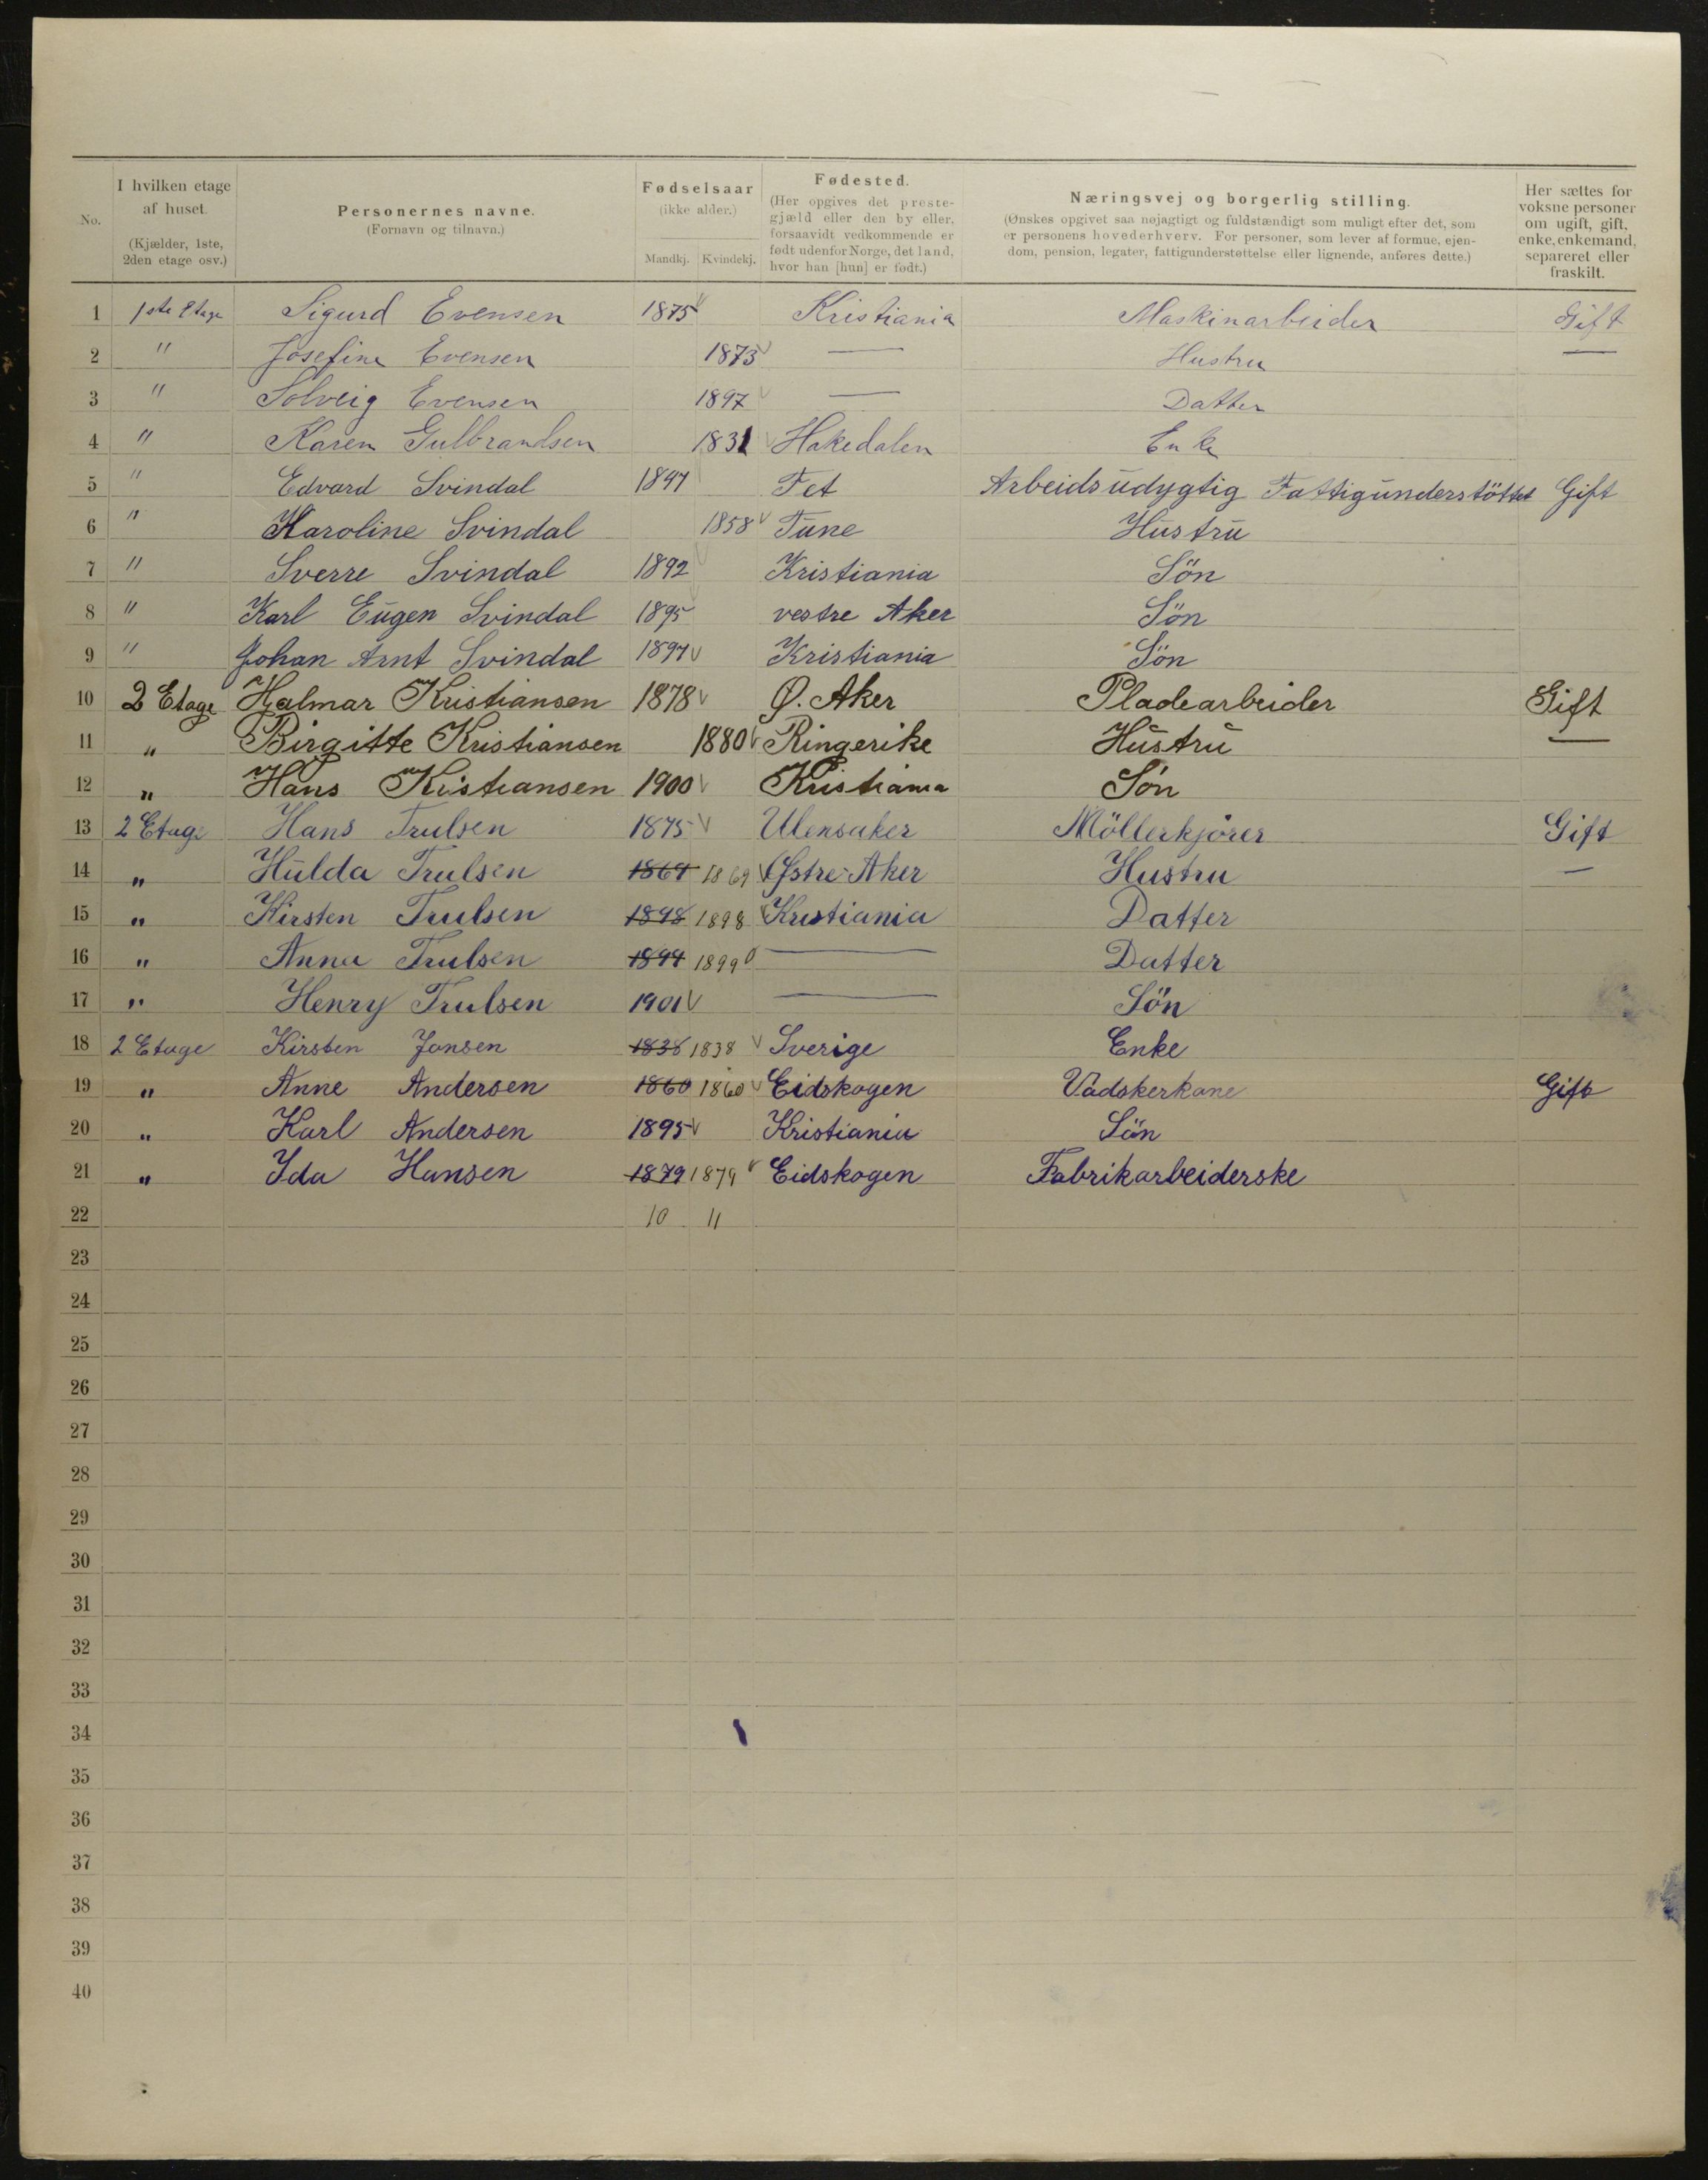 No. I hvilken etage af huset. (Kjælder, 1ste, 2den etage osv.) Personernes navne. (Fornavn og tilnavn.) Fødselsaar (ikke alder.) Mandkj. Kvindekj. Fødested. (Her opgives det prestegjæld eller den by eller, forsaavidt vedkommende er født udenfor Norge, det land, hvor han [hun] er født.) Næringsvej og borgerlig stilling. (Ønskes opgivet saa nøjagtigt og fuldstændigt som muligt efter det, som er personens hovederhverv. For personer, som lever af formue, ejendom, pension, legater, fattigunderstøttelse eller lignende, anføres dette.) Her sættes for voksne personer om ugift, gift, enke, enkemand, separeret eller fraskilt.
1 1ste Etage Sigurd Evensen 1875 Kristiania Maskinarbeider Gift
2 " Josefine Evensen 1873 — Hustru —
3 " Solveig Evensen 1897 — Datter
4 " Karen Gulbrandsen 1831 Hakedalen Enke
5 " Edvard Svindal Fet Arbeidsudygtig Fattigunderstöttet Gift
6 " Karoline Svindal 1858 Tune Hustru
7 " Sverre Svindal 1892 Kristiania Sön
8 " Karl Eugen Svindal 1895 vestre Aker Sön
9 " Johan Arnt Svindal 1897 Kristiania Sön
10 2 Etage Hjalmar Kristiansen 1878 Ø. Aker Pladearbeider Gift
11 " Birgitte Kristiansen 1880 Ringerike Hustru —
12 " Hans Kistiansen 1900 Kristiania Sön
13 2 Etage Hans Trulsen 1875 Ulensaker Möllerkjörer Gift
14 " Hulda Trulsen 1869 1869 Østre Aker Hustru —
15 " Kirsten Trulsen 1898 1898 Kristiania Datter
16 " Anna Trulsen 1899 1899 — Datter
17 " Henry Trulsen 1901 — Sön
18 2 Etage Kirsten Jonsen 1838 1838 Sverige Enke
19 " Anne Andersen 1860 1860 Eidskogen Vadskerkone Gift
20 " Karl Andersen 1895 Kristiania Sön
21 " Ida Hansen 1879 1879 Eidskogen Fabrikarbeiderske
22 10 11
23
24
25
26
27
28
29
30
31
32
33
34
35
36
37
38
39
40